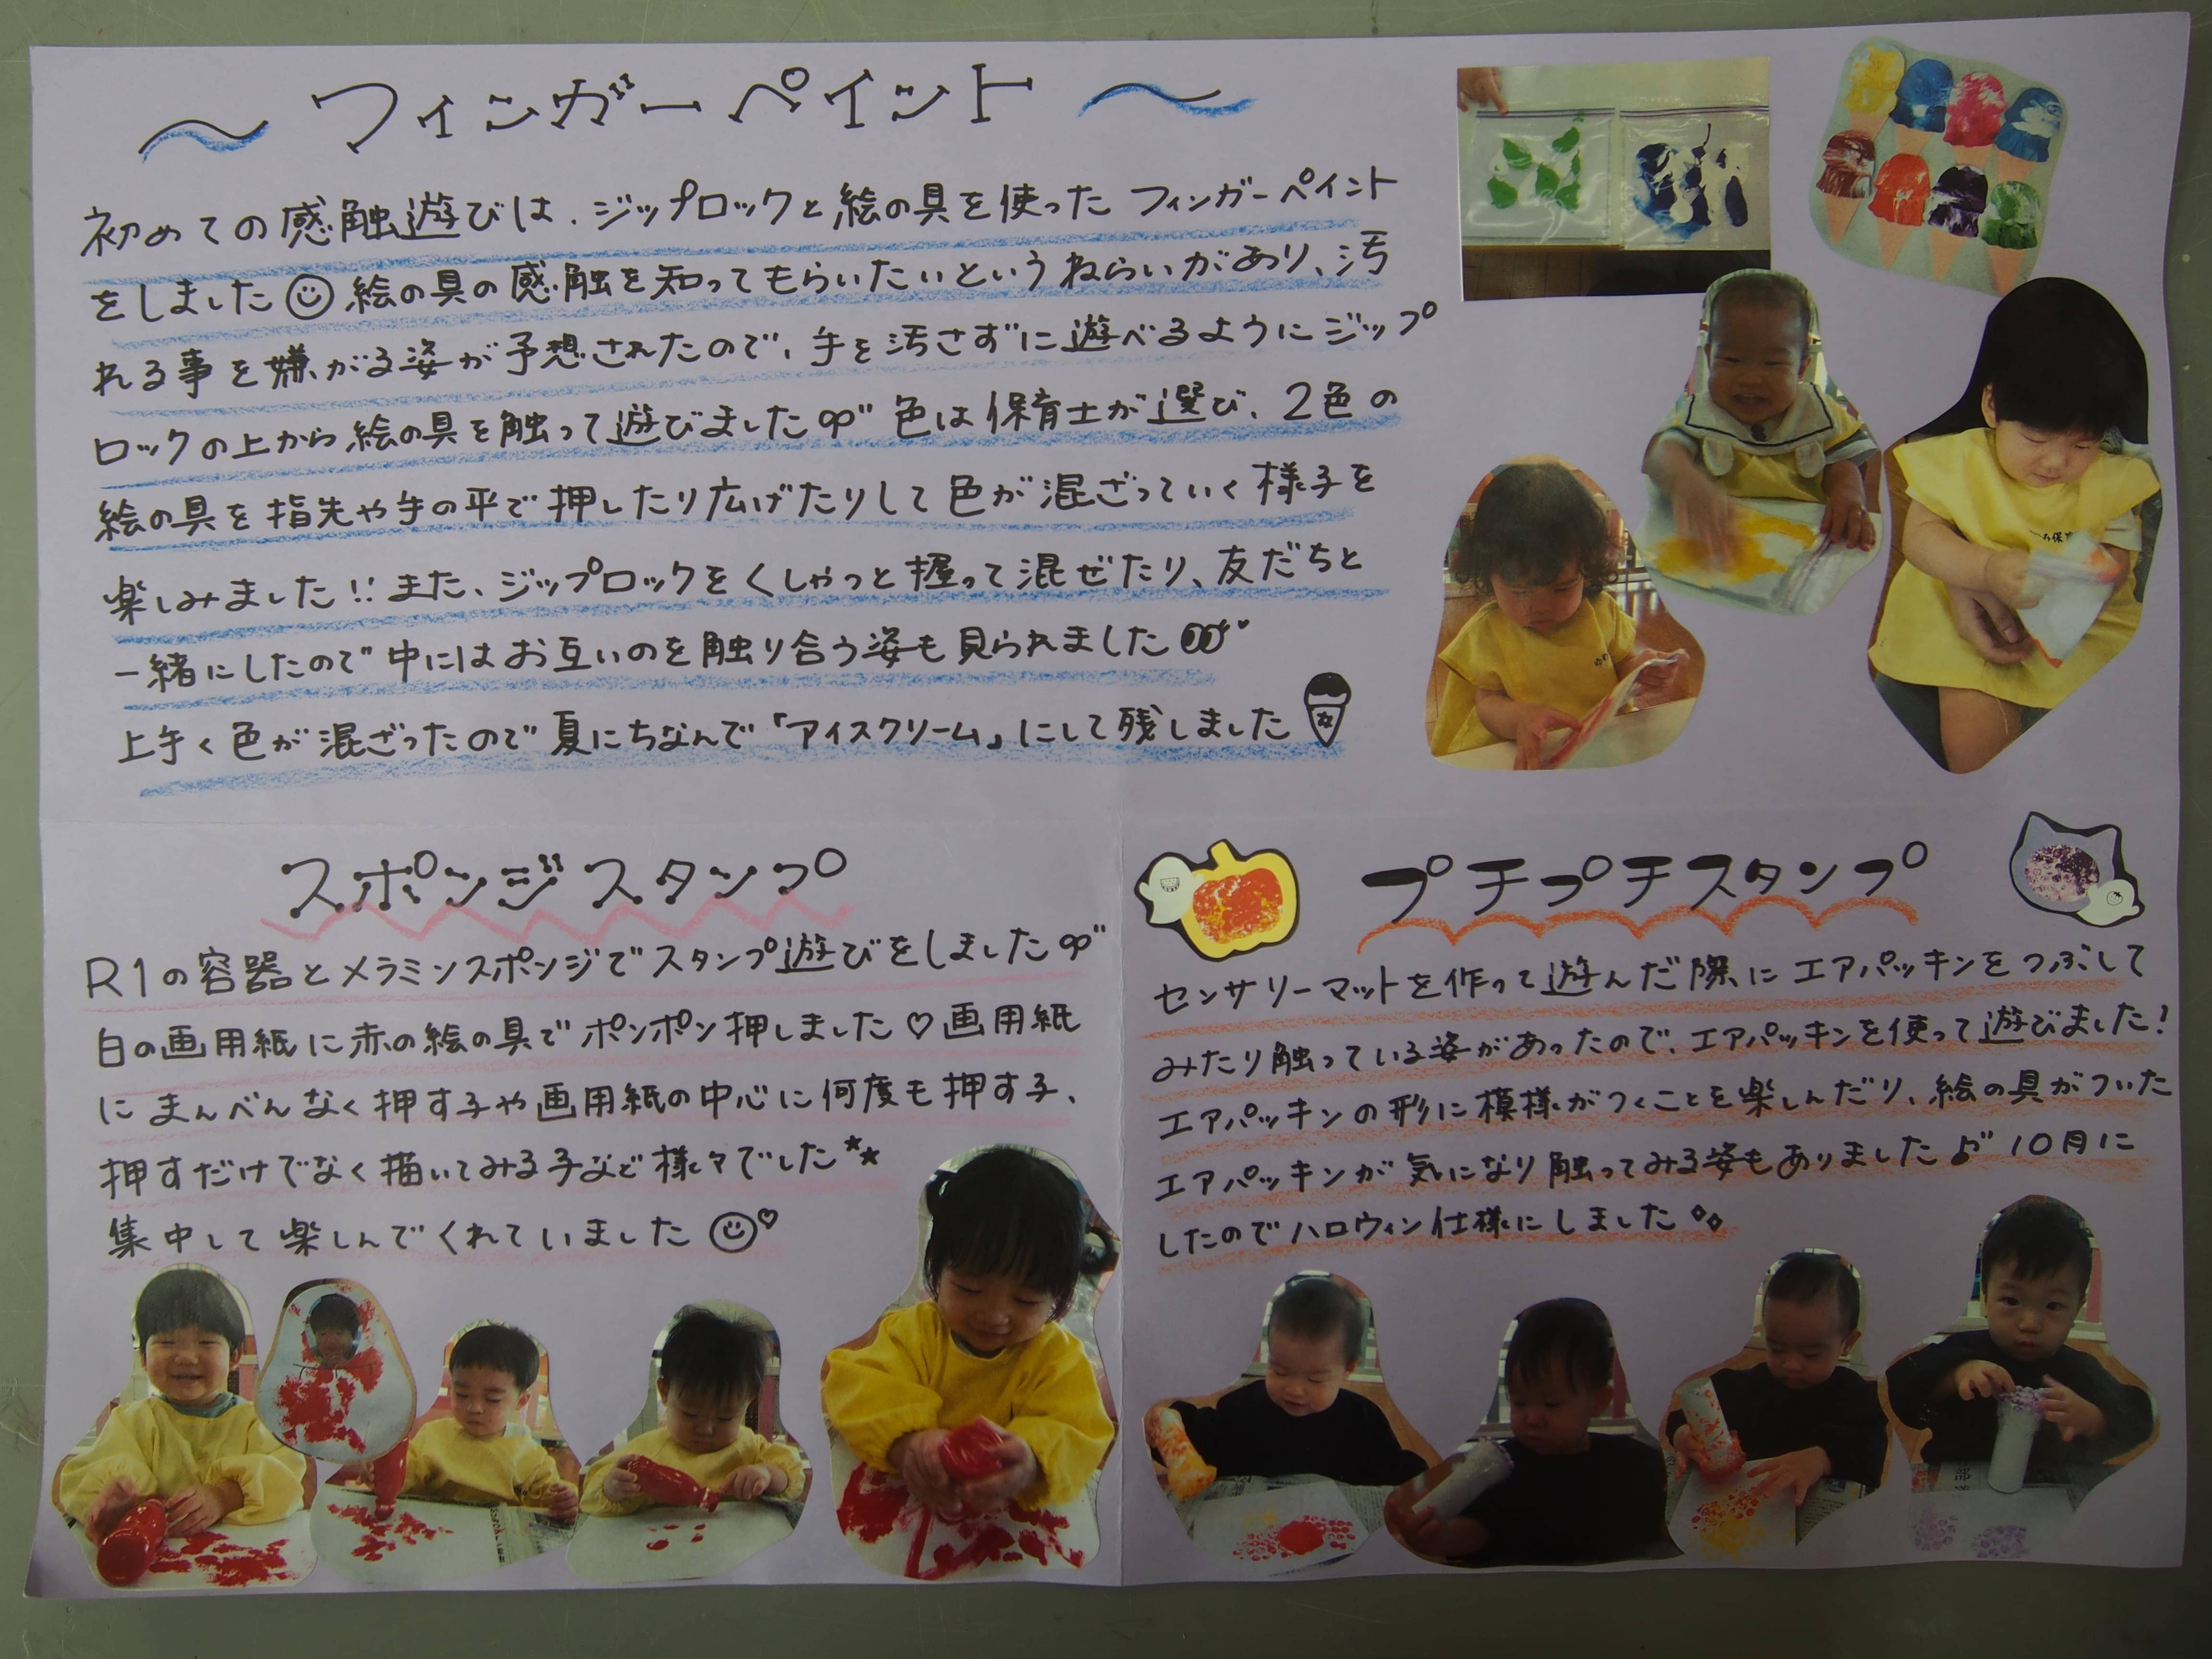 ～フィンガーペイント～
初めての感触遊びは、ジップロックと絵の具を使ったフィンガーペイント
をしました 絵の具の感触を知ってもらいたいというねらいがあり、汚
れる事を嫌がる姿が予想されたので、手を汚さずに遊べるようにジップ
ロックの上から絵の具を触って遊びました 色は保育士が選び、2色の
絵の具を指先や手の平で押したり広げたりして色が混ざっていく様子を
楽しみました!! また、ジップロックをくしゃっと握って混ぜたり、友だちと
一緒にしたので中にはお互いのを触り合う姿も見られました
上手く色が混ざったので夏にちなんで「アイスクリーム」にして残しました
スポンジスタンプ
R1の容器とメラミンスポンジでスタンプ遊びをしました
白の画用紙に赤の絵の具でポンポン押しました♡画用紙
にまんべんなく押す子や画用紙の中心に何度も押す子、
押すだけでなく描いてみる子など様々でした★★
集中して楽しんでくれていました♡
プチプチスタンプ
センサリーマットを作って遊んだ際にエアパッキンをつぶして
みたり触っている姿があったので、エアパッキンを使って遊びました!
エアパッキンの形に模様がつくことを楽しんだり、絵の具がついた
エアパッキンが気になり触ってみる姿もありました♪ 10月に
したのでハロウィン仕様にしました